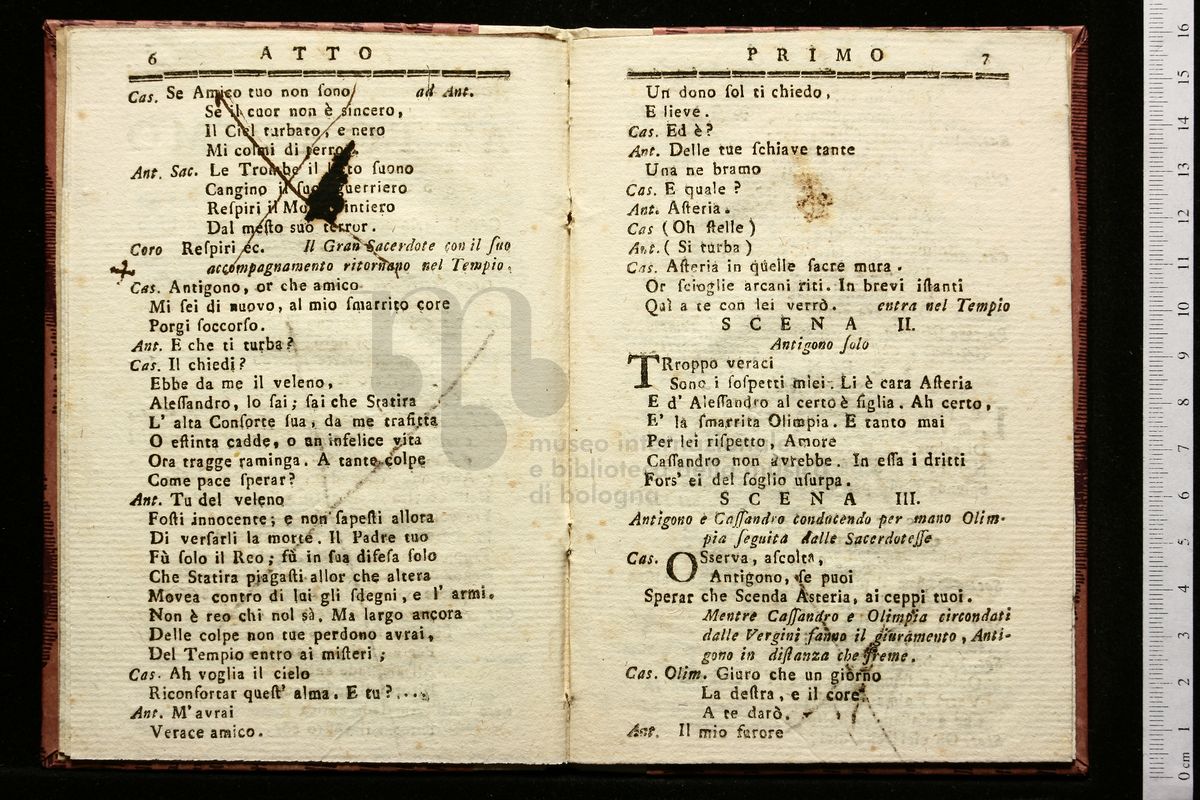 6 ATTO
Cas. Se Amico tuo non ſono, ad Ant.
Se il cuor non è sincero,
Il Ciel turbato, e nero
Mi colmi di terror.
Ant. Sac. Le Trombe il ſuono
Cangino il ſuo guerriero
Reſpiri il intiero
Dal meſto suo terror.
Coro Reſpiri ec. Il Gran Sacerdote con il ſuo
accompagnamento ritornano nel Tempio.
Cas. Antigono, or che amico
Mi ſei di nuovo, al mio ſmarrito core
Porgi ſoccorſo.
Ant. E che ti turba?
Cas. Il chiedi?
Ebbe da me il veleno,
Aleſſandro, lo ſai; ſai che Statira
L' alta Conſorte ſua, da me trafitta
O eſtinta cadde, o un infelice vita
Ora tragge raminga. A tante colpe
Come pace ſperar?
Ant. Tu del veleno
Foſti innocente; e non ſapeſti allora
Di verſarli la morte. Il Padre tuo
Fù ſolo il Reo; fù in ſua difeſa ſolo
Che Statira piagaſti allor che altera
Movea contro di lui gli ſdegni, e l' armi.
Non è reo chi nol sà. Ma largo ancora
Delle colpe non tue perdono avrai,
Del Tempio entro ai miſteri;
Cas. Ah voglia il cielo
Riconfortar queſt' alma. E tu?....
Ant. M' avrai
Verace amico.
PRIMO 7
Un dono ſol ti chiedo,
E lieve.
Cas. Ed è?
Ant. Delle tue ſchiave tante
Una ne bramo
Cas. E quale?
Ant. Aſteria.
Cas (Oh ſtelle)
Ant. (Si turba)
Cas. Aſteria in quelle ſacre mura.
Or ſcioglie arcani riti. In brevi iſtanti
Quì a te con lei verrò. entra nel Tempio
SCENA II.
Antigono ſolo
TRroppo veraci
Sono i ſoſpetti miei. Li è cara Aſteria
E d' Aleſſandro al certo è figlia. Ah certo,
E' la ſmarrita Olimpia. E tanto mai
Per lei riſpetto, Amore
Caſſandro non avrebbe. In eſſa i dritti
Fors' ei del ſoglio uſurpa.
SCENA III.
Antigono e Caſſandro conducendo per mano Olim-
pia ſeguita dalle Sacerdoteſſe
Cas. OSserva, aſcolta,
Antigono, ſe puoi
Sperar che Scenda Aſteria, ai ceppi tuoi.
Mentre Caſſandro e Olimpia circondati
dalle Vergini fanno il giuramento, Anti-
gono in diſtanza che freme.
Cas. Olim. Giuro che un giorno
La deſtra, e il core
A te darò.
Ant. Il mio furore
museo
e biblioteca
di bologna
0 cm 1 2 3 4 5 6 7 8 9 10 11 12 13 14 15 16